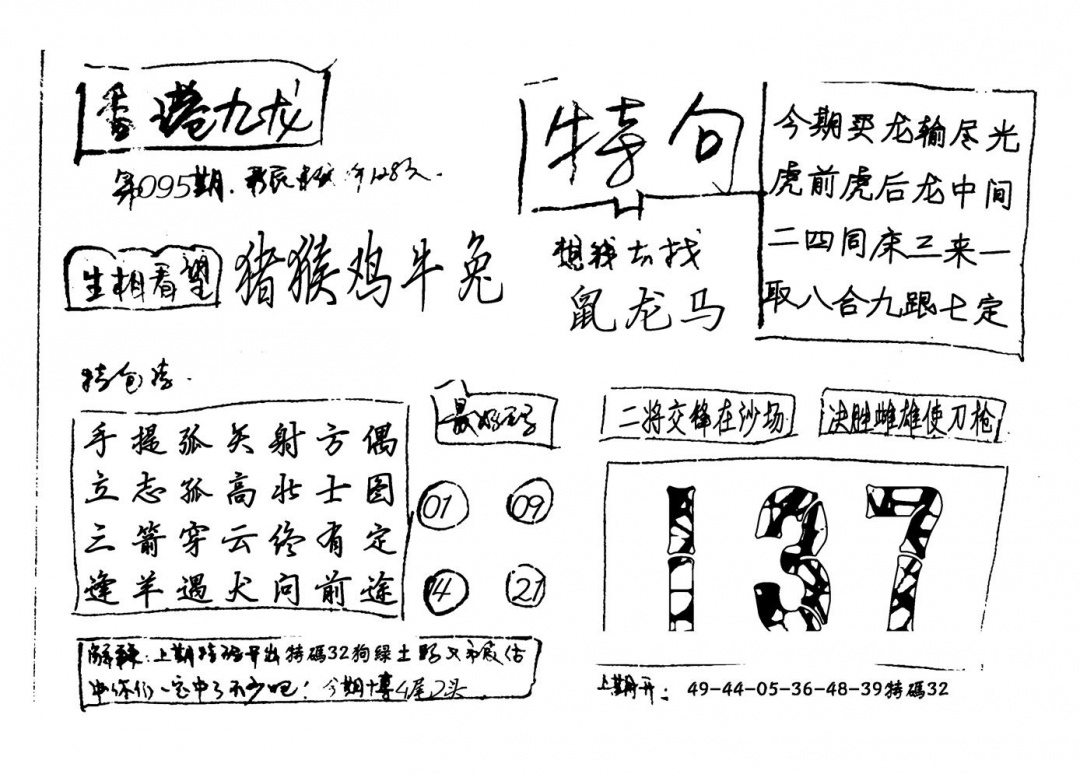 香港九龙
第095期.
生相看望
猪猴鸡牛兔
特句
想我去找
鼠龙马
今期买龙输尽光
虎前虎后龙中间
二四同床三来一
取八合九跟七定
特包
手提孤矢射方偶
立志孤高壮士图
三箭穿云终有定
逢羊遇犬问前途
最好
01 09
14 21
二将交锋在沙场
决胜雌雄使刀枪
137
解释:上期特码开出特碼32狗綠土
中你们一定中了不少吧!今期博4尾2头
上期开: 49-44-05-36-48-39特碼32